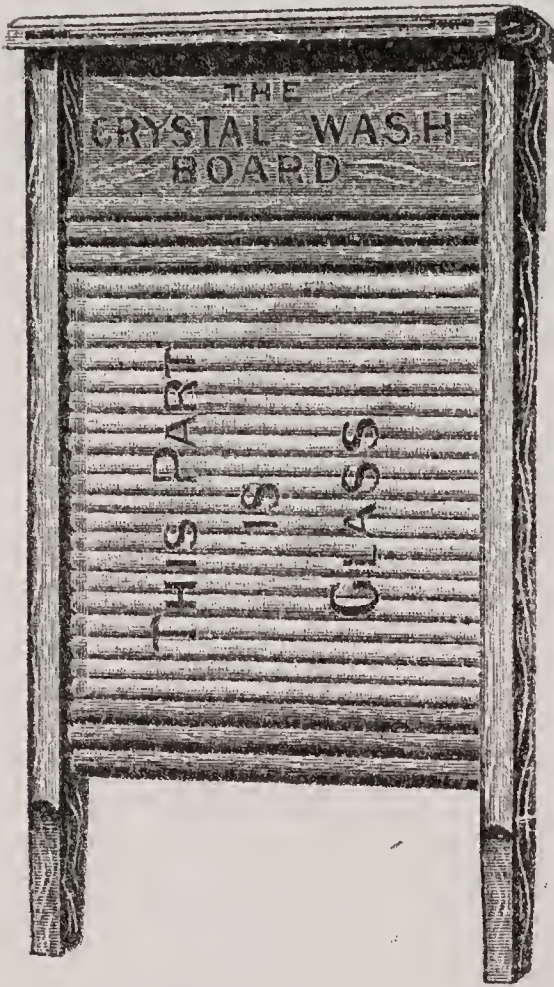 THE
CRYSTAL WASH
BOARD
THIS PART
IS
GLASS